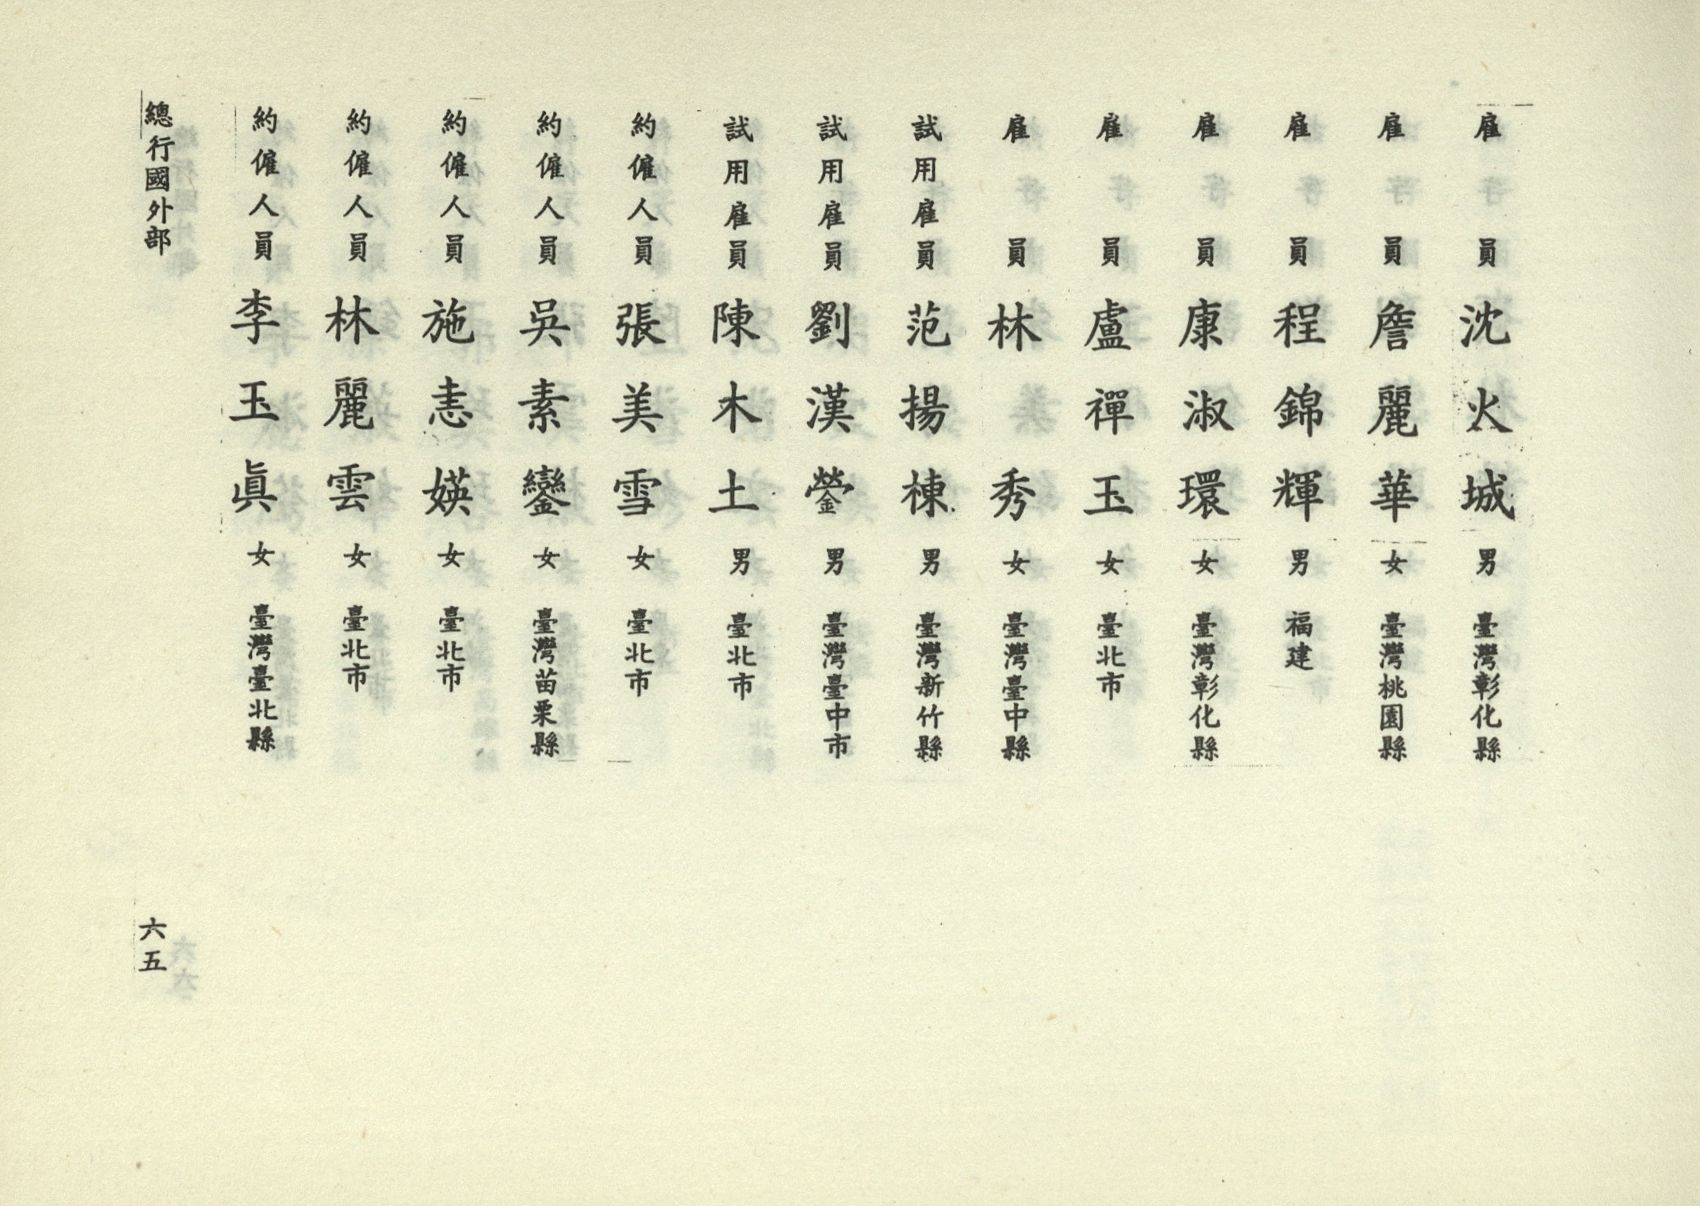 雇員 沈火城 男 臺灣彰化縣
雇員 詹麗華 女 臺灣桃園縣
雇員 程錦輝 男 福建
雇員 康淑環 女 臺灣彰化縣
雇員 盧禪玉 女 臺北市
雇員 林秀 女 臺灣臺中縣
試用雇員 范揚棟 男 臺灣新竹縣
試用雇員 劉漢鎣 男 臺灣臺中市
試用雇員 陳木土 男 臺北市
約僱人員 張美雪 女 臺北市
約僱人員 吳素鑾 女 臺灣苗栗縣
約僱人員 施恚媖 女 臺北市
約僱人員 林麗雲 女 臺北市
約僱人員 李玉眞 女 臺灣臺北縣
總行國外部
六五